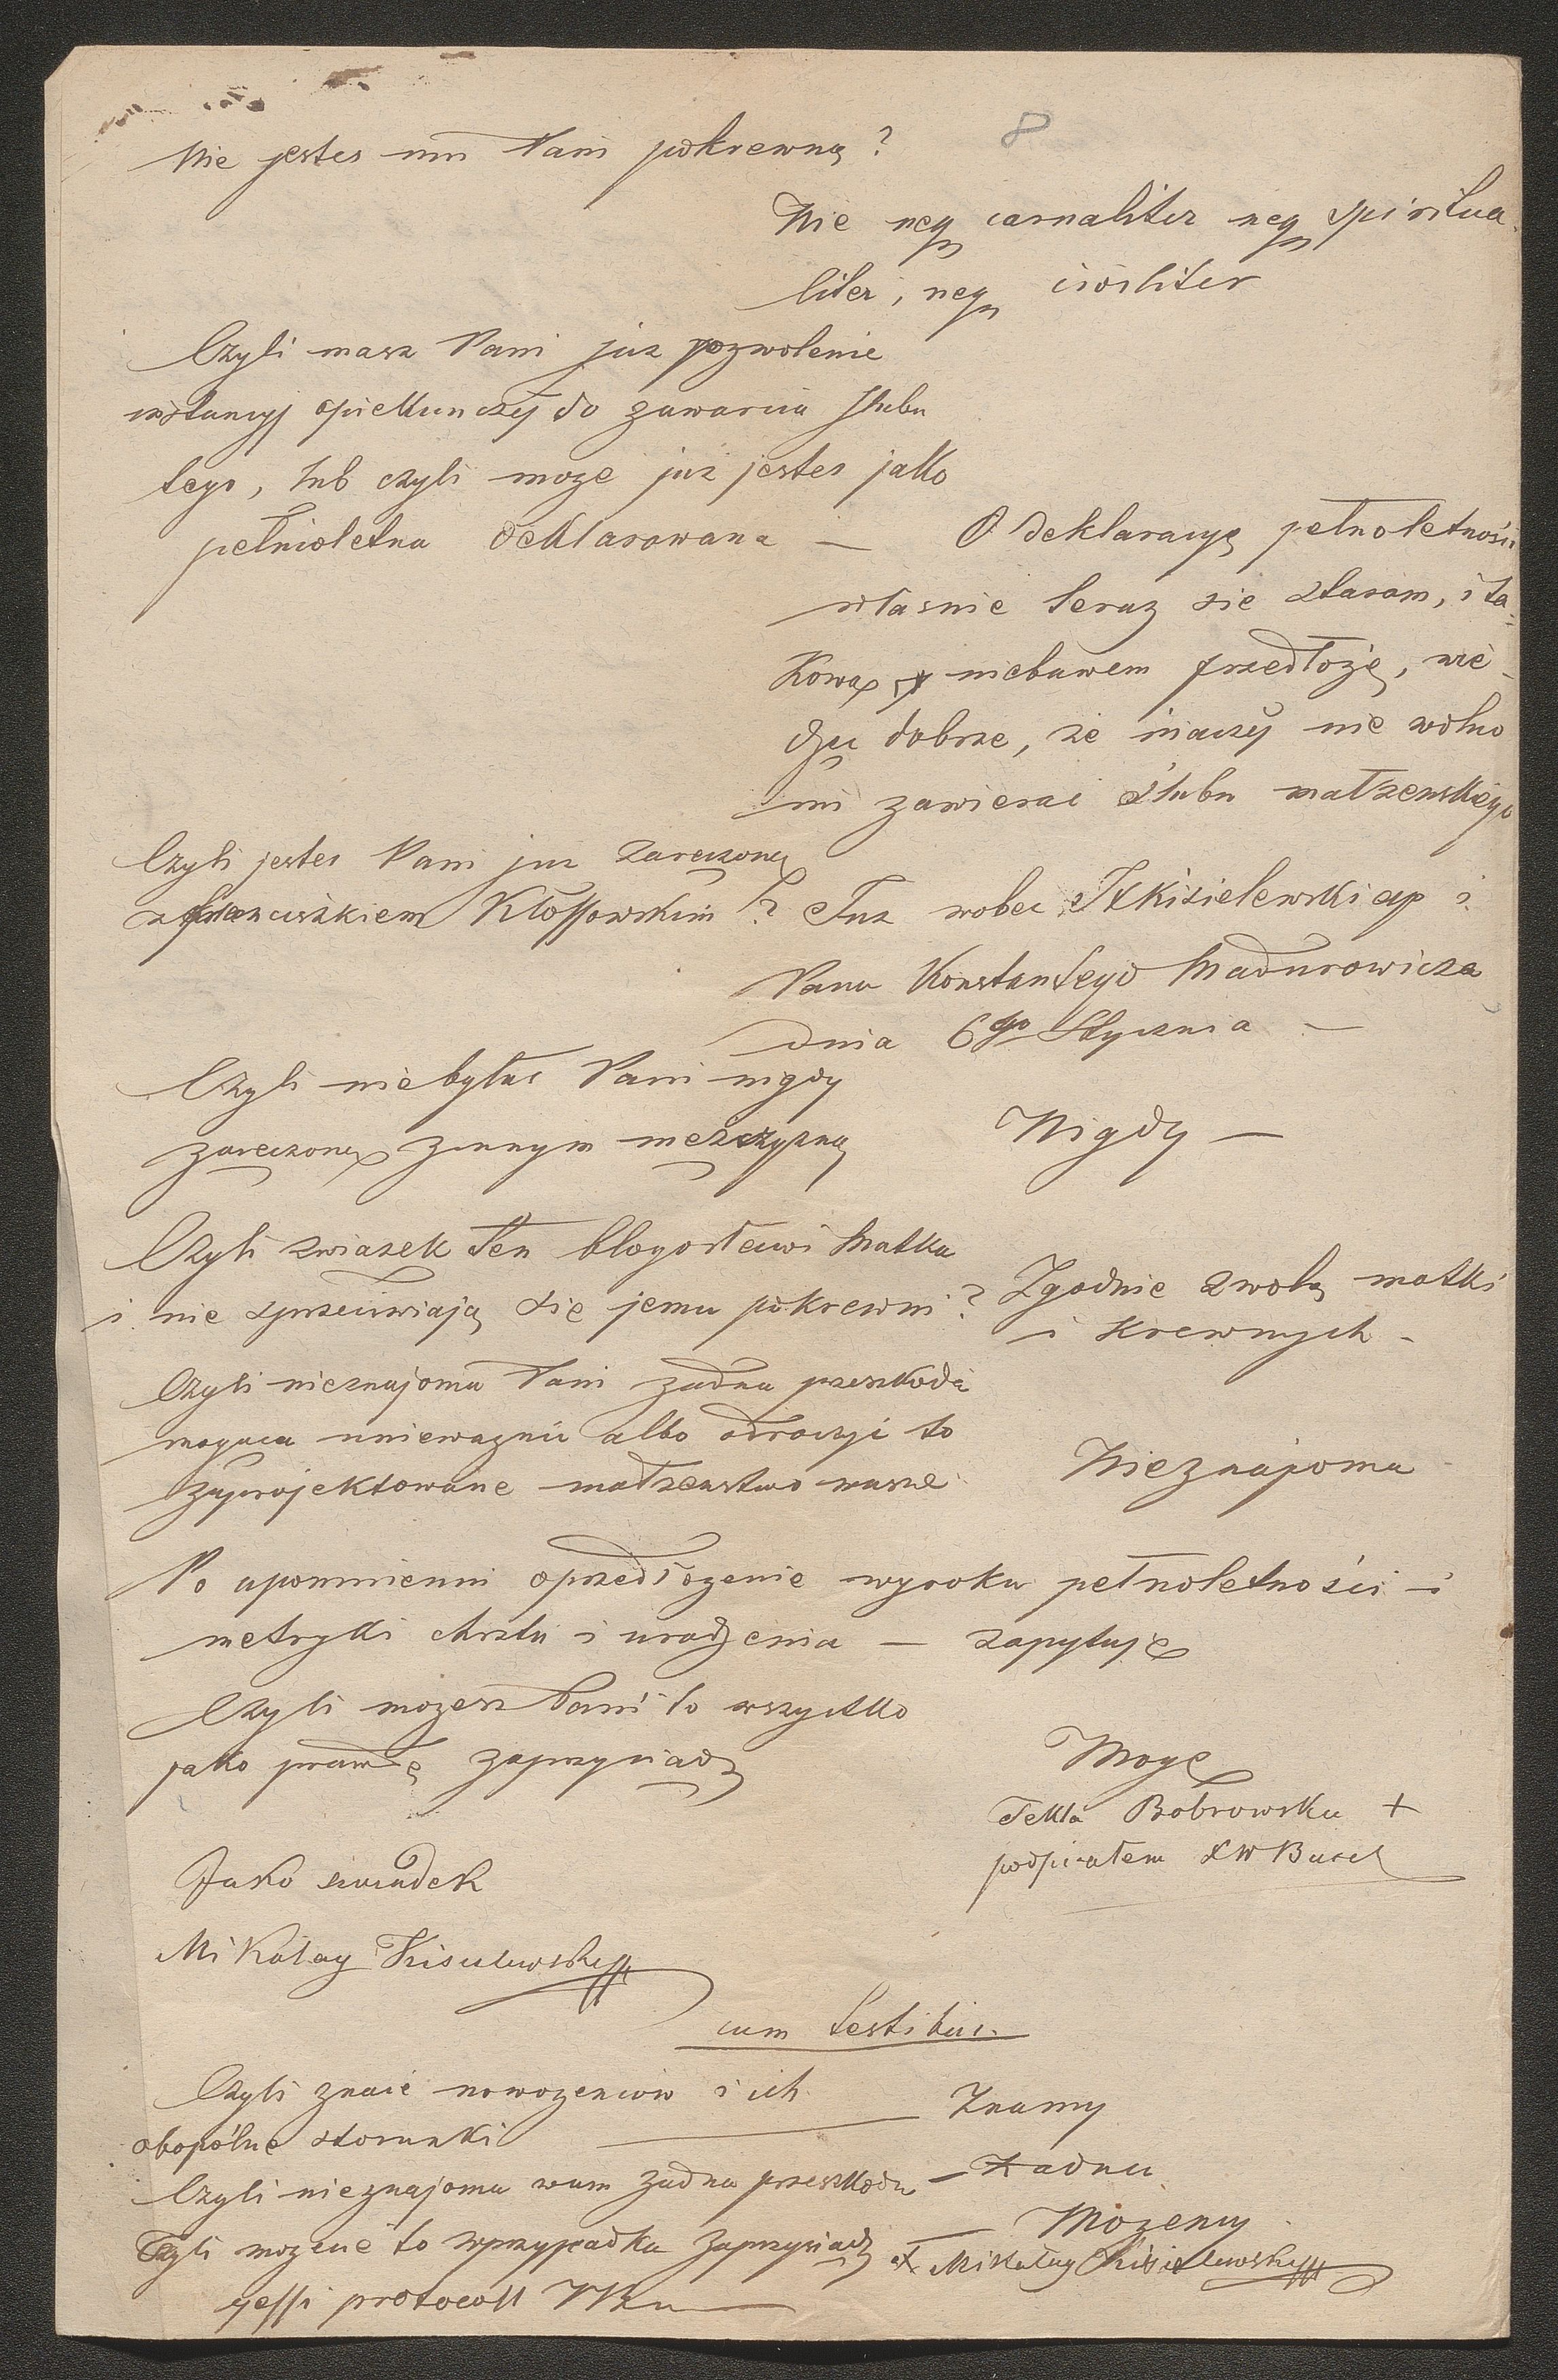 8
Nie jestes mu Pani pokrewną?
Nie neq carnaliter neq spiritua
liter, neq civiliter
Czyli masz Pani juz pozwolenie
instancyj opiekunczéj do zawarcia slubu
tego, lub czyli moze juz jestes jako
pełnioletna deklarowana —
O deklaracyę pełnoletności
własnie teraz sie staram, i ta=
kową niebawem przedłożę, wie-
dzą dobrze, ze inaczéj nie wolno
mi zawierac ślubu małzenskiego
Czyli jestes Pani juz zaręczoną
z Franciszkiem Kłossowskim?
Juz wobec Kisielewskiego i
Pana Konstantego Madurowicza
dnia 6go Stycznia —
Czyli niebyłas Pani nigdy
zaręczoną z innym mężczyzną
Nigdy —
Czyli zwiazek ten błogosławi Matka
i nie sprzeciwiają się jemu pokrewni?
Zgodnie z wolą matki
i krewnych -
Czyli nieznajoma Pani żadna przeszkoda
mogąca uniewaznić albo odroczyć to
zaprojektowane małzenstwo wasze
Nieznajoma
Po upomnieniu o przedłozenie wyroku pełnoletności i
metryki chrztu i urodzenia — zapytuję
Czyli mozesz Pani to wszystko
jako prawdę zaprzysiądz
Mogę
Tekla Bobrowska +
podpisałem XW
Jako swiadek
Mikołay Kisielewsky
cum testibus.
Czyli znacie nowozencow i ich
obopólne stosunki
— Znamy
Czyli nieznajoma wam żadna przeszkoda
— Żadna
Czyli mozecie to w przypadku zaprzysiądz
— Mozemy
Mikołay Kisielewsky
gessi protocoll